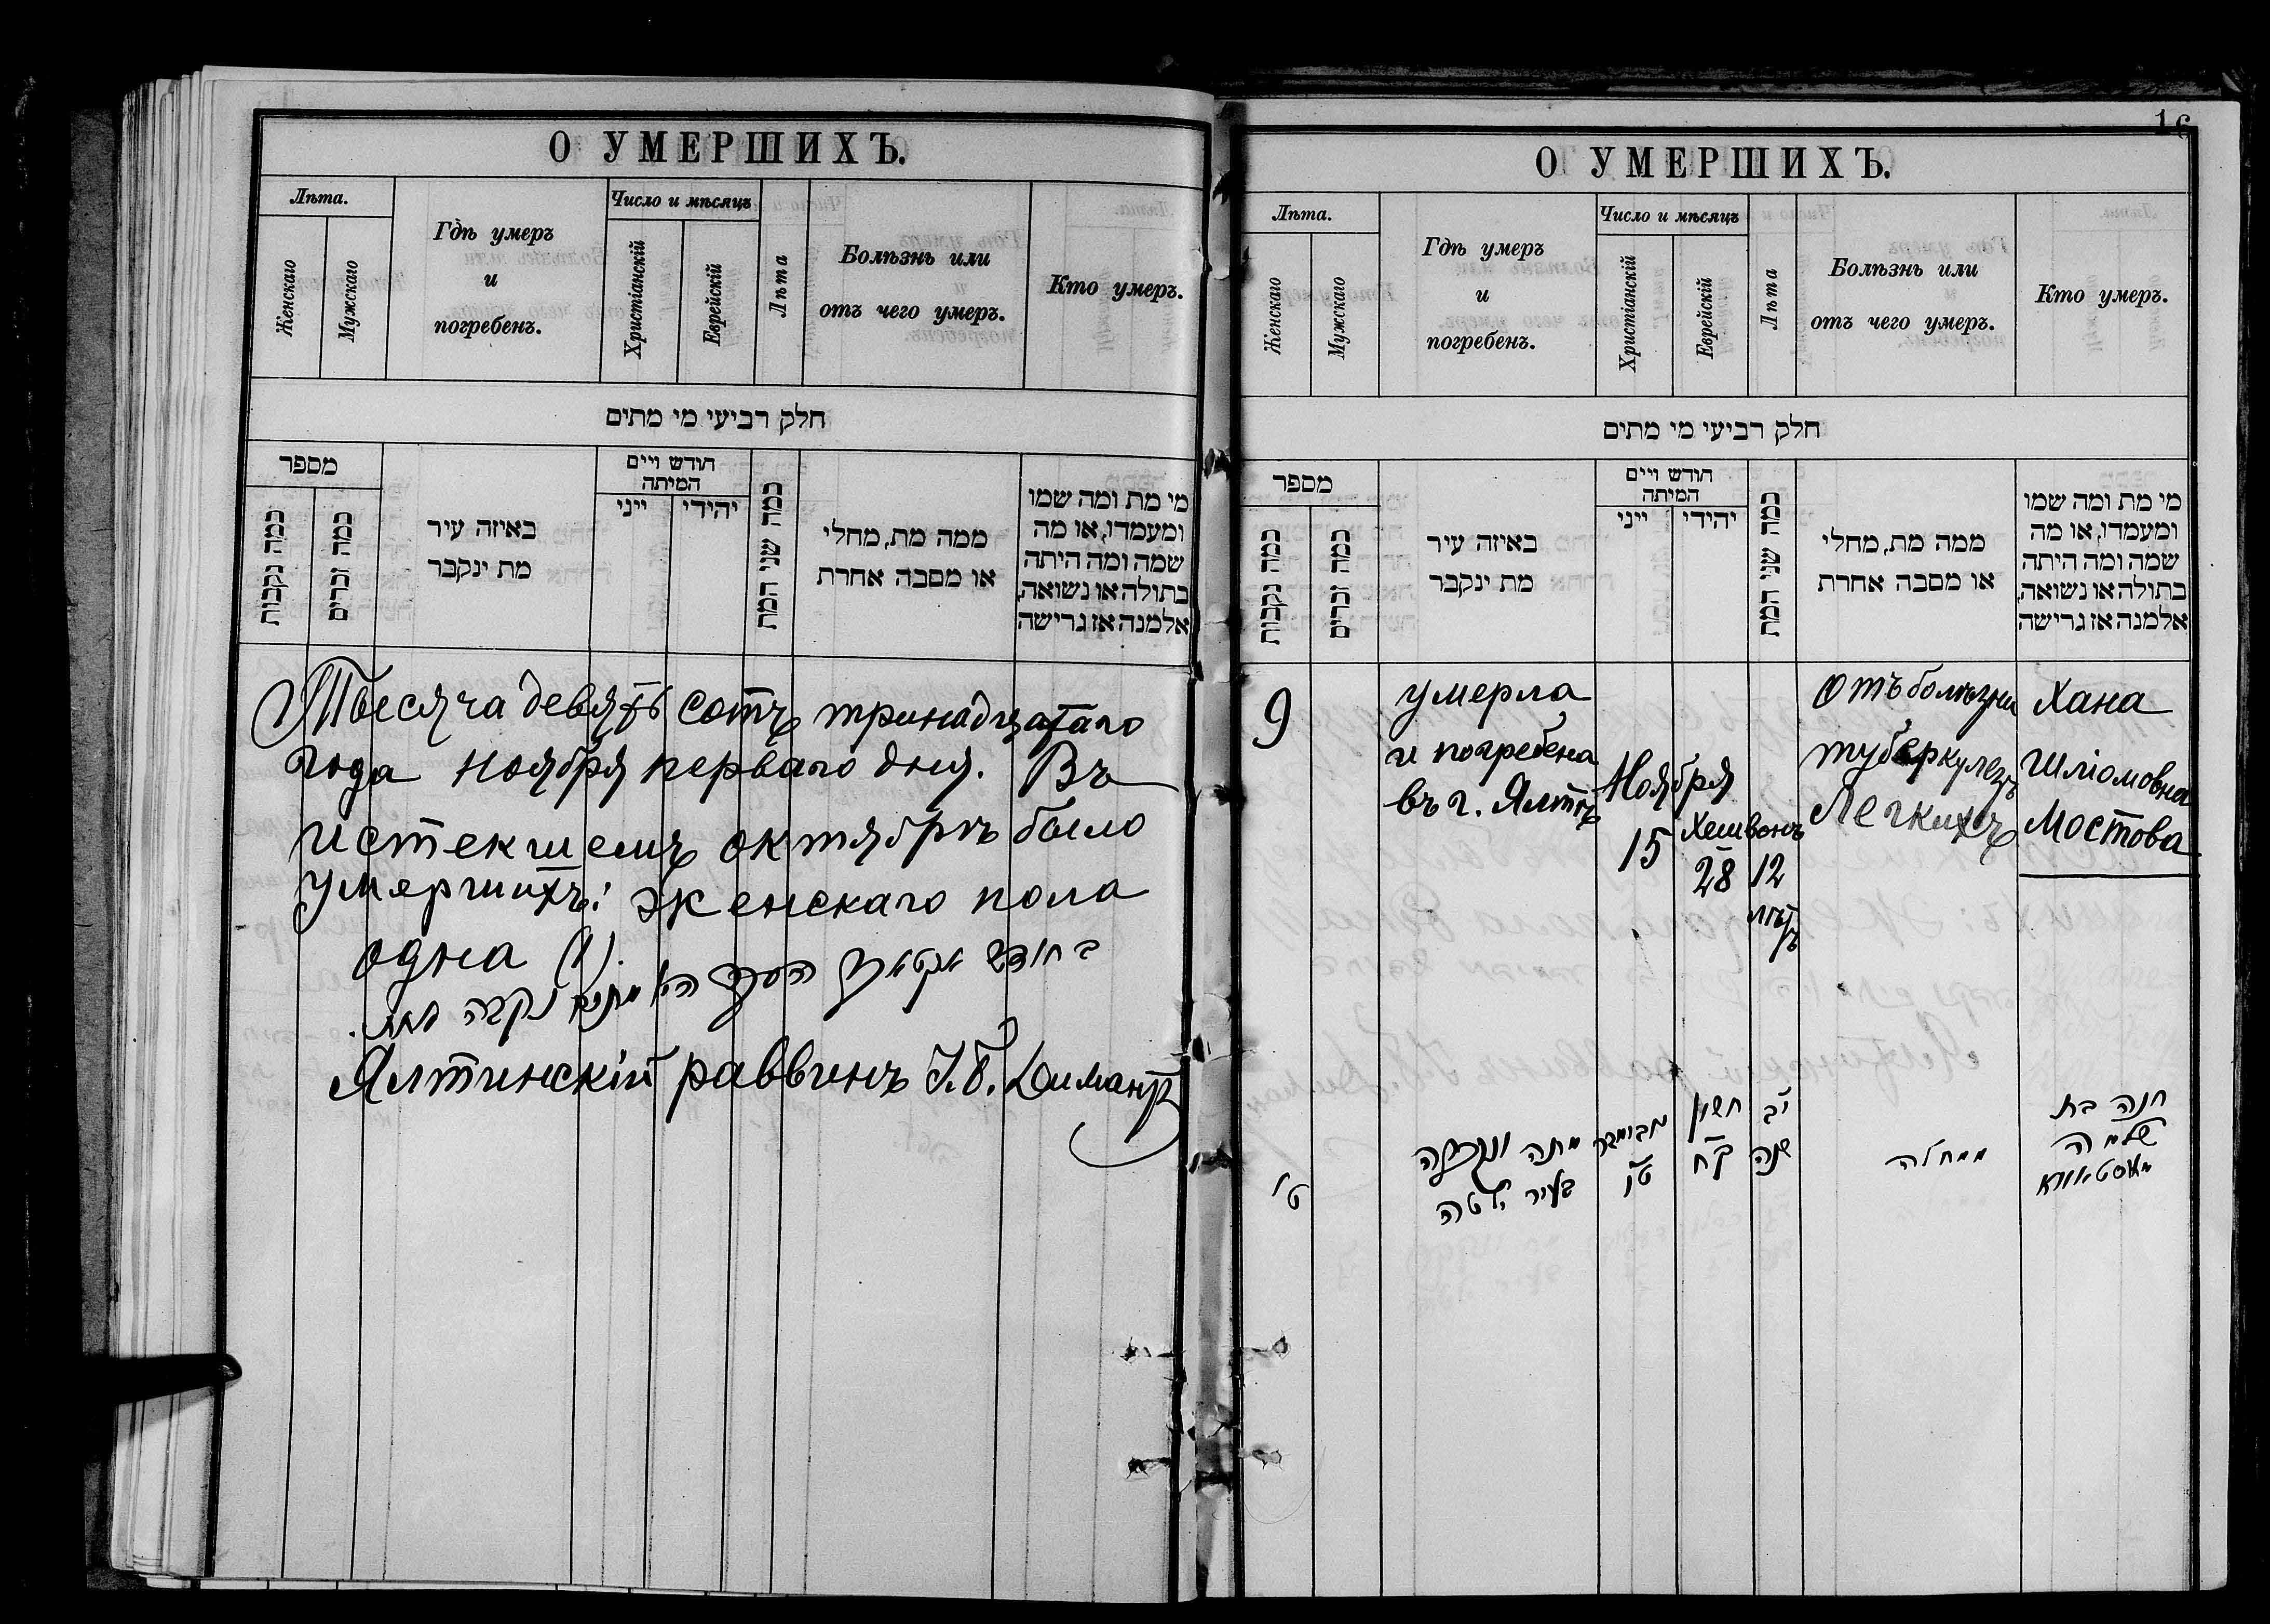 О УМЕРШИХЪ.
Лѣта.
Женскаго
Мужскаго
Гдѣ умеръ
и
погребенъ.
Число и мѣсяцъ
Христіанскій
Еврейскій
Лѣта
Болѣзнь или
отъ чего умеръ.
Кто умеръ.
חלק רביעי מי מתים
מספר
כמה נקבות
כמה זכרים
באיזה עיר
מת ינקבר
חודש ויים
המיתה
ייני
יהודי
כמה שני המת
ממה מת, מחלי
או מסבה אחרת
מי מת ומה שמו
ומעמדו, או מה
שמה ומה היתה
בתולה או נשואה,
אלמנה אז גרישה
Тысяча девять сотъ тринадцатаго
года ноября перваго дня. Въ
истекшемъ октябрѣ было
умершихъ: женскаго пола
одна (1).
בחודש
Ялтинскій раввинъ І. Б. Димантъ
16
О УМЕРШИХЪ.
Лѣта.
Женскаго
Мужскаго
Гдѣ умеръ
и
погребенъ.
Число и мѣсяцъ
Христіанскій
Еврейскій
Лѣта
Болѣзнь или
отъ чего умеръ.
Кто умеръ.
חלק רביעי מי מתים
מספר
כמה נקבות
כמה זכרים
באיזה עיר
מת ינקבר
חודש ויים
המיתה
ייני
יהודי
כמה שני המת
ממה מת, מחלי
או מסבה אחרת
מי מת ומה שמו
ומעמדו, או מה
שמה ומה היתה
בתולה או נשואה,
אלמנה אז גרישה
9
умерла
и погребена
въ г. Ялтѣ
Ноября
15
Хешвонъ
28
12
лѣтъ
отъ болѣзни
туберкулезъ
легкихъ
Хана
Шліомовна
Мостова
ט'
מתה ונקברה
בעיר ילטה
נאיאבר
ט"ו
חשון
כ"ח
י"ב
שנה
ממחלה
חנה בת
שלמה
מאסטאווא